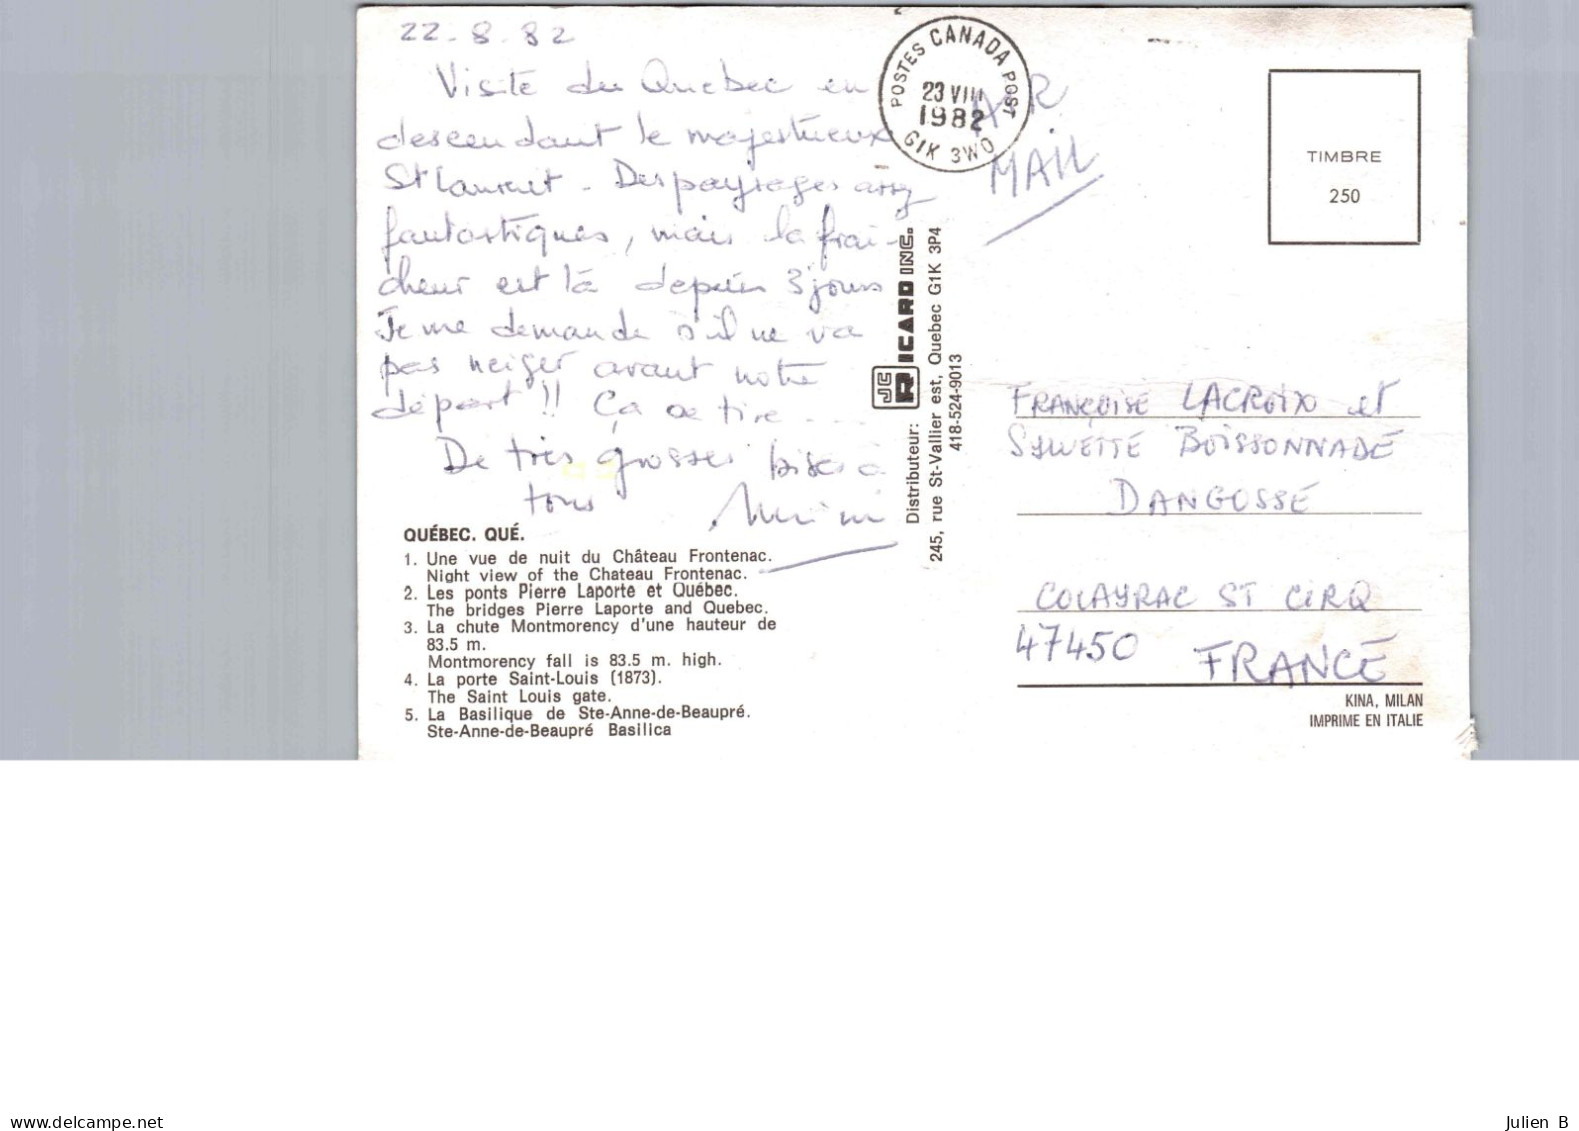 22-8-82
Visite du Quebec en
descendant le majestueux
St Laurent - Des paysages assez
fantastiques, mais la fraî-
cheur est là depuis 3 jours
Je me demande s'il ne va
pas neiger avant notre
départ !! Ça se tire ....
De très grosses bises à
tous
Mimi
QUÉBEC. QUÉ.
1. Une vue de nuit du Château Frontenac.
Night view of the Chateau Frontenac.
2. Les ponts Pierre Laporte et Québec.
The bridges Pierre Laporte and Quebec.
3. La chute Montmorency d'une hauteur de
83.5 m.
Montmorency fall is 83.5 m. high.
4. La porte Saint-Louis (1873).
The Saint Louis gate.
5. La Basilique de Ste-Anne-de-Beaupré.
Ste-Anne-de-Beaupré Basilica
Distributeur: JCR RICARD INC.
245, rue St-Vallier est, Quebec G1K 3P4
418-524-9013
POSTES CANADA POST
23 VIII
1982
G1K 3W0
AIR
MAIL
TIMBRE
250
FRANÇOISE LACROIX et
SYLVETTE BOISSONNADE
DANGOSSE
COLAYRAC ST CIRQ
47450 FRANCE
KINA, MILAN
IMPRIME EN ITALIE
www.delcampe.net
Julien B